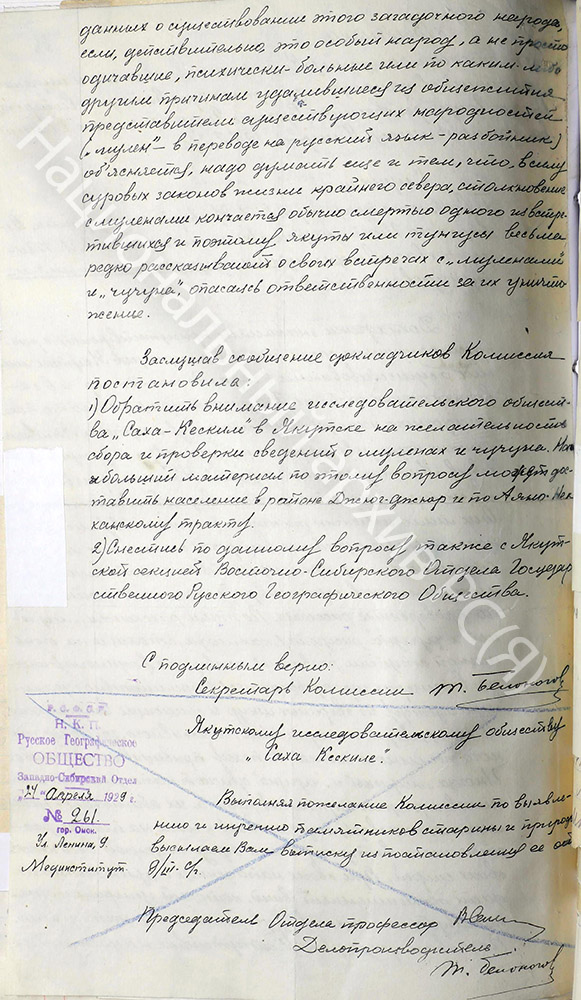 данных о существовании этого загадочного народа,
если, действительно это особый народ, а не просто
одичавшие, психически-больные или по каким-либо
другим причинам удалившиеся из общежития
представители существующих народностей
(„мулен"- в переводе на русский язык-разбойник)
об'ясняется, надо думать еще и тем, что, в силу
суровых законов жизни крайнего севера, столкновение
с муленами кончается обычно смертью одного из встре-
тившихся и поэтому якуты или тунгусы весьма
редко рассказывают о своих встречах с „муленами"
и „чучуна", опасаясь ответственности за их уничто
жение.
Заслушав сообщение докладчиков Комиссия
постановила:
1) Обратить внимание исследовательского общест-
ва „Саха-Кескиле" в Якутске на желательность
сбора и проверки сведений о муленах и чучуна. Наи
больший материал по этому вопросу может дос-
тавить население в районе Джюг-джюр и по Аяно-Нель
канскому тракту.
2) Снестись по данному вопросу также с Якут-
ской секцией Восточно-Сибирского Отдела Государ
ственного Русского Географического Общества.
С подлинным верно:
Секретарь Комиссии Т. Белоногов
Якутскому исследовательскому обществу
„Саха Кескиле".
Р. С. Ф. С. Р.
Н. К. П.
Русское Географическое
ОБЩЕСТВО
Западно-Сибирский Отдел
"27" Апреля 1929 г.
№ 261.
гор. Омск.
Ул Ленина, 9
Мединститут
Выполняя пожелание Комиссии по выявле-
нию и изучению памятников старины и природы
высылаем Вам выписку из постановления ее от
9/III- с/г.
Председатель Отдела профессор
Делопроизводитель
Т. Белоногов
Национальный архив РС(Я)